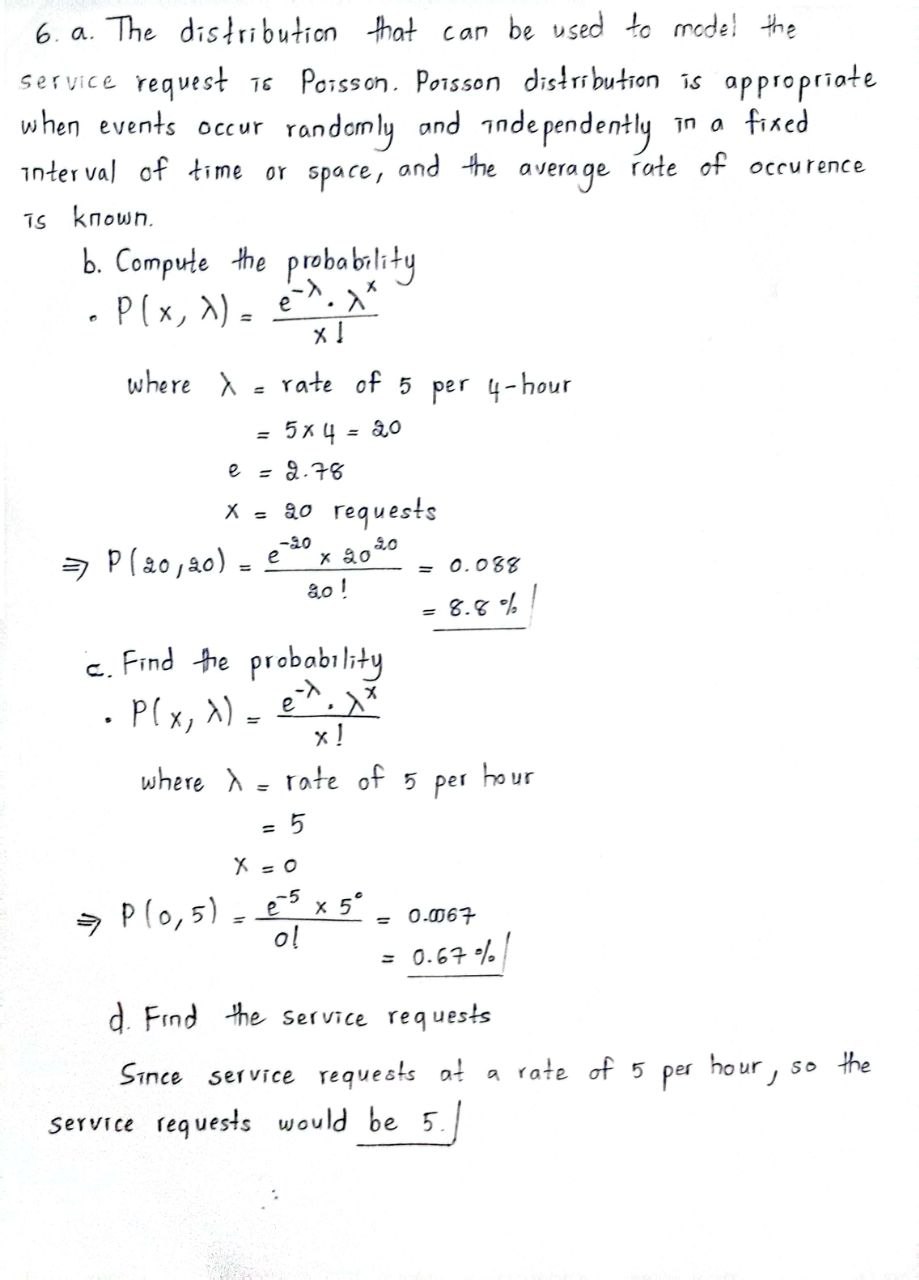 6. a. The distribution that can be used to model the
service request is Poisson. Poisson distribution is appropriate
when events occur randomly and independently in a fixed
interval of time or space, and the average rate of occurence
is known.
b. Compute the probability
• P(x, λ) = e^-λ . λ^x / x!
where λ = rate of 5 per 4-hour
= 5 x 4 = 20
e = 2.78
x = 20 requests
⇒ P(20,20) = e^-20 x 20^20 / 20! = 0.088
= 8.8 %
c. Find the probability
• P(x, λ) = e^-λ . λ^x / x!
where λ = rate of 5 per hour
= 5
x = 0
⇒ P(0,5) = e^-5 x 5^0 / 0! = 0.0067
= 0.67 %
d. Find the service requests
Since service requests at a rate of 5 per hour, so the
service requests would be 5.